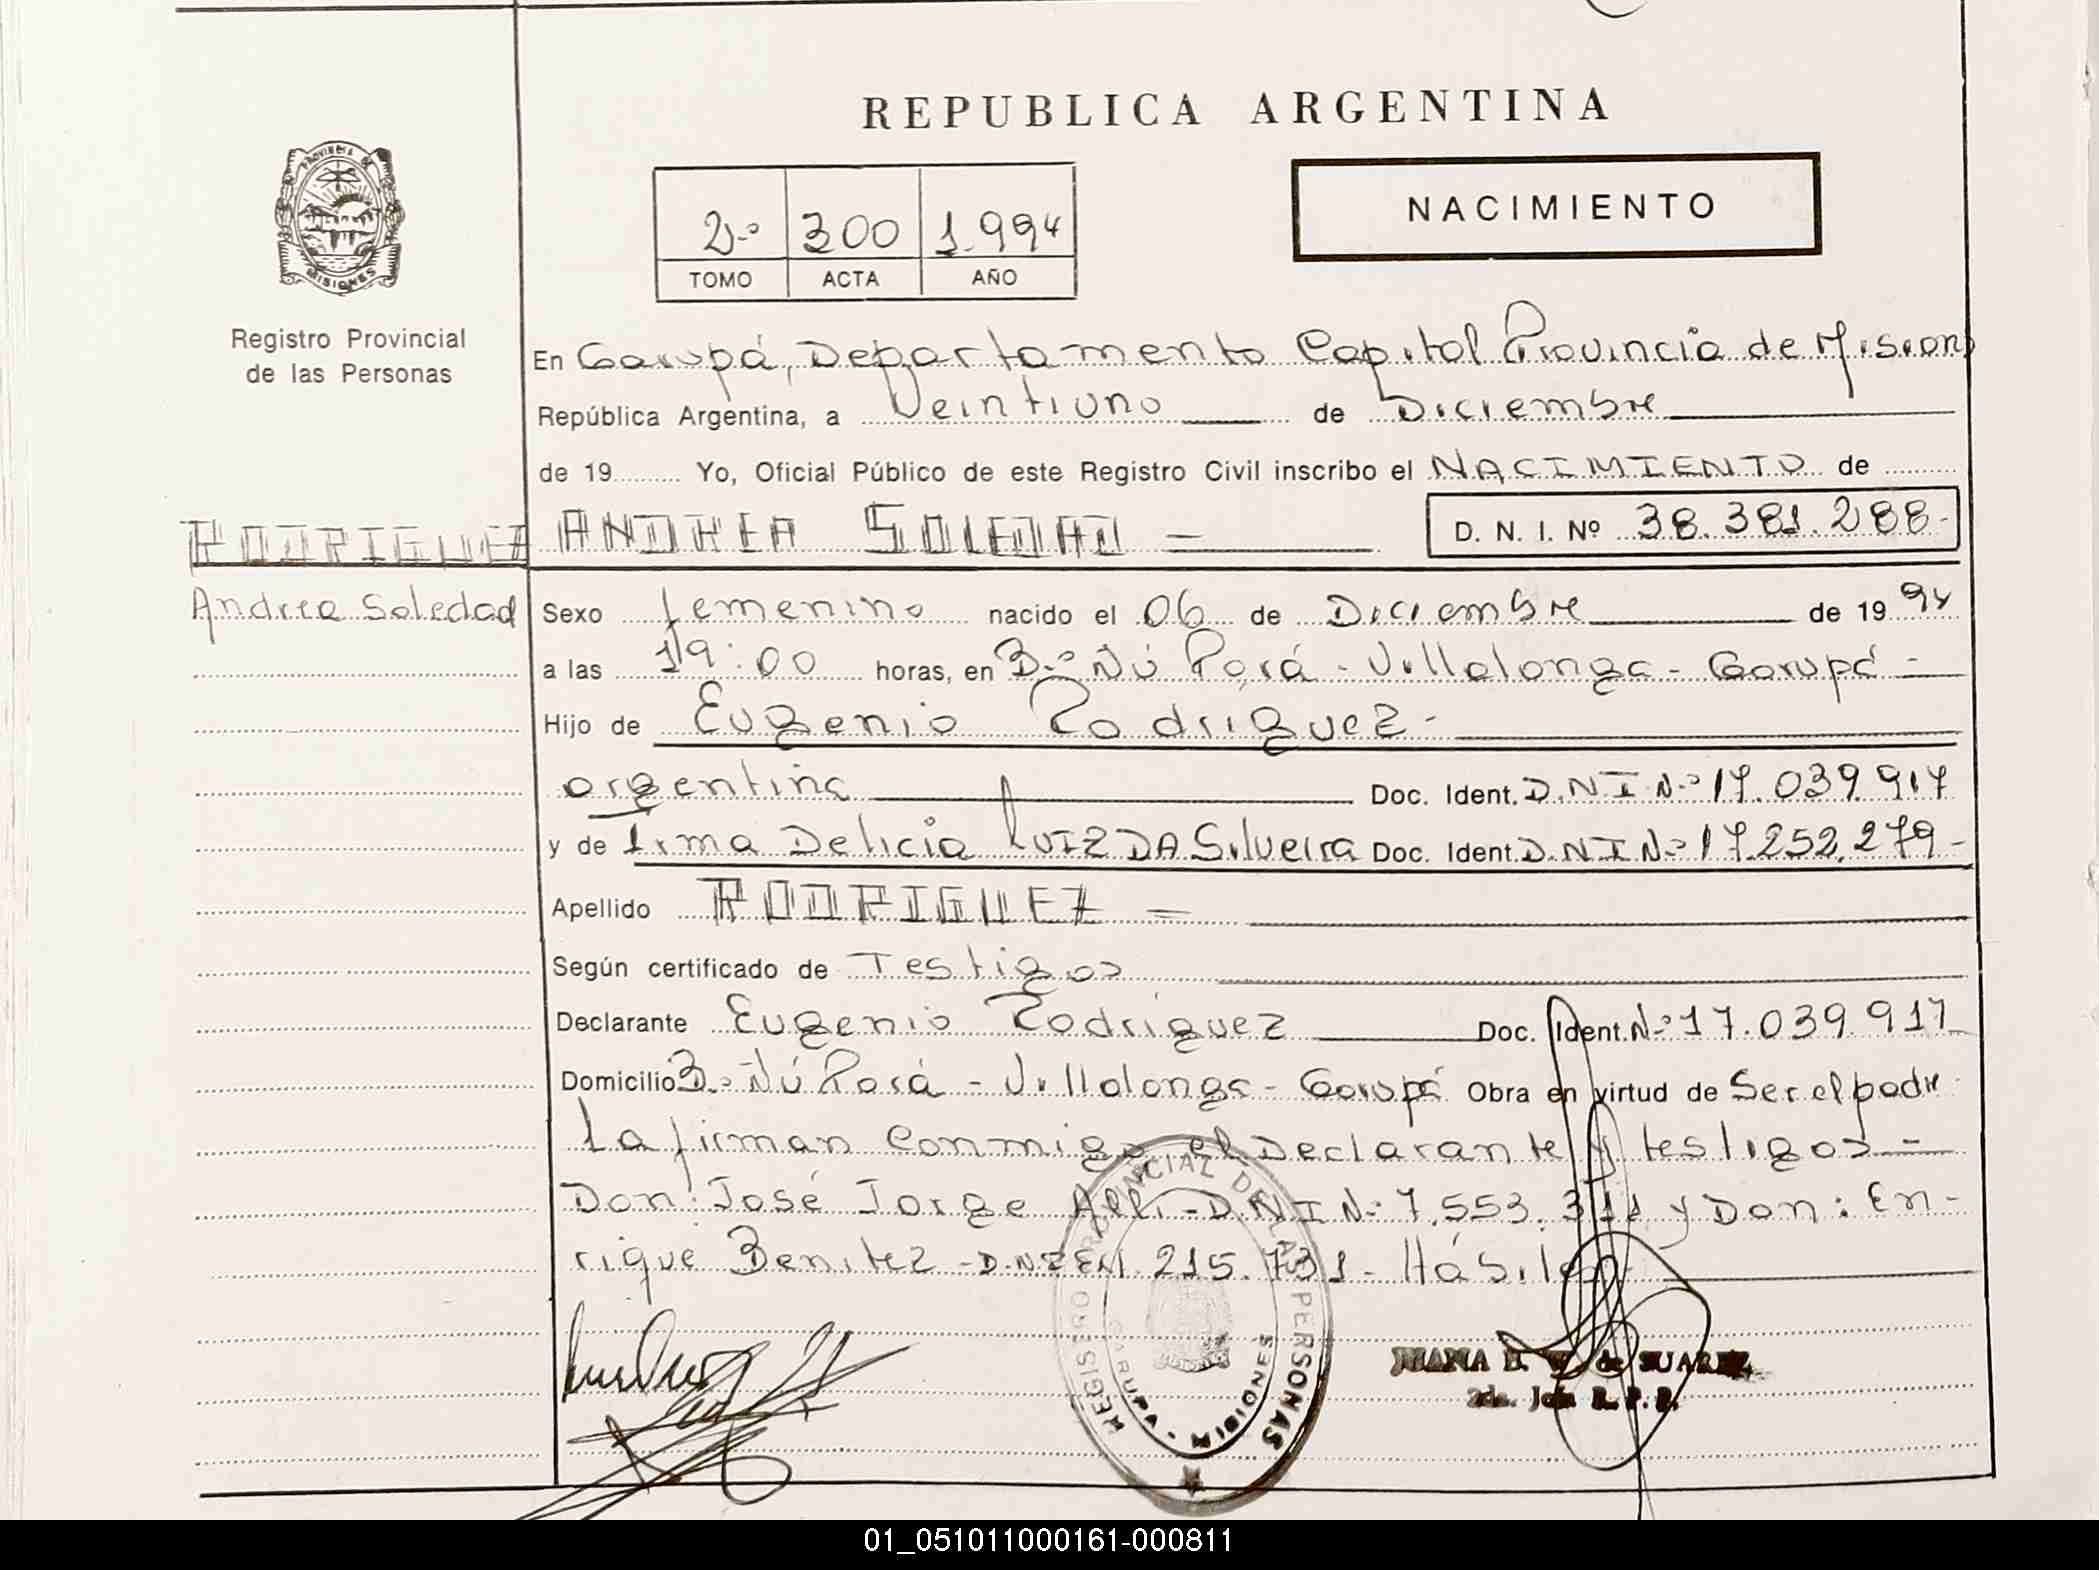 REPUBLICA ARGENTINA
PROVINCIA DE
MISIONES
Registro Provincial
de las Personas
2º 300 1.994
TOMO ACTA AÑO
NACIMIENTO
En Garupá, Departamento Capital Provincia de Mision
República Argentina, a Veintiuno de Diciembre
de 19 Yo, Oficial Público de este Registro Civil inscribo el NACIMIENTO de
RODRIGUEZ ANDREA SOLEDAD = D. N. I. Nº 38.381.288-
Andrea Soledad
Sexo femenino nacido el 06 de Diciembre de 19 94
a las 19:00 horas, en B.º Ñú Porá - Villalonga - Garupá -
Hijo de Eugenio Rodriguez -
argentina Doc. Ident. D.N.I N.º 17.039.917
y de Irma Delicia RUIZ DA Silveira Doc. Ident. D.N.I N.º 17.252.279-
Apellido RODRIGUEZ =
Según certificado de Testigos
Declarante Eugenio Rodriguez Doc. Ident. N.º 17.039.917
Domicilio B.º Ñú Porá - Villalonga - Garupá Obra en virtud de Ser el padre
La firman Conmigo el Declarante y testigos -
Don: José Jorge D.N.I N.º 7.553.311 y Don: En-
rique Benitez - 215.731 - Hábiles
REGISTRO PROVINCIAL DE LAS PERSONAS
GARUPA - MISIONES
JUANA de SUAREZ
2da. Jefa R. P. P.
01_051011000161-000811